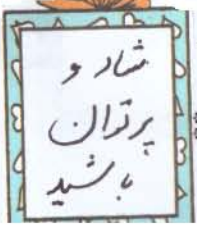 شاد و
پرتوان
باشید